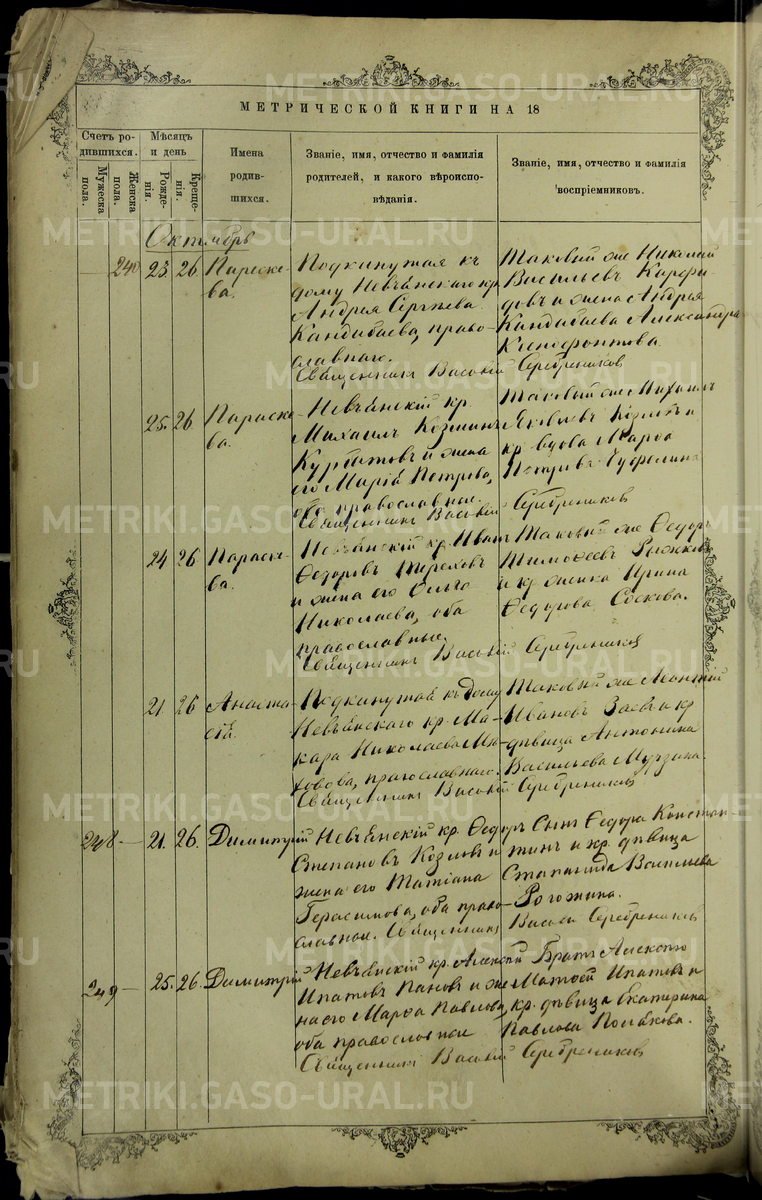 МЕТРИЧЕСКОЙ КНИГИ НА 18
Счетъ ро-
дившихся.
Мужеска
пола.
Женска
пола.
Мѣсяцъ
и день
Рожде-
нія.
Креще-
нія.
Имена
родив-
шихся.
Званіе, имя, отчество и фамилія
родителей, и какого вѣроиспо-
вѣданія.
Званіе, имя, отчество и фамилія
воспріемниковъ.
Октябрь
240 23. 26 Параске-
ва.
Подкинутая къ
дому Невьянскаго кр.
Андрея Сергѣева
Кандибаева, право-
славнаго.
Священникъ Василій Серебрениковъ
Таковый же Николай
Васильевъ
и жена Андрея
Кандибаева Александра
Ксенофонтова
25. 26 Параске-
ва.
Невьянскій кр.
Михаилъ Козминъ
Курбатовъ и жена
его Марія Петрова,
оба православные.
Священникъ Василій Серебрениковъ
Таковый же Михаилъ
Яковлевъ Козловъ и
кр. вдова Марѳа
Петрова
24 26 Параске-
ва.
Невьянскій кр. Иванъ
Ѳедоровъ Тереховъ
и жена его Ольга
Николаева, оба
православные.
Священникъ Василій Серебрениковъ
Таковый же Ѳедоръ
Тимоѳеевъ Рыжковъ
и кр. женка Ирина
Ѳедорова Соскова.
21. 26 Анаста-
сія.
Подкинутая къ дому
Невьянскаго кр. Ма-
кара Николаева
православнаго.
Священникъ Василій Серебрениковъ
Таковый же Леонтій
Ивановъ Заевъ и кр.
дѣвица Антонина
Васильева Мурзина.
248 — 21. 26. Димитрій
Невьянскій кр. Ѳедоръ
Степановъ Козловъ и
жена его Татіана
Герасимова, оба право-
славные. Священникъ Василій Серебрениковъ
Сынъ Ѳедора Констан-
тинъ и кр. дѣвица
Степанида Васильева
Рогожина.
249 — 25. 26. Димитрій
Невьянскій кр. Алексѣй
Ипатовъ Пановъ и же-
на его Марѳа Павлова,
оба православные
Священникъ Василій Серебрениковъ
Братъ Алексѣя
Матѳей Ипатовъ и
кр. дѣвица Екатерина
Павлова Полякова.
METRIKI.GASO-URAL.RU